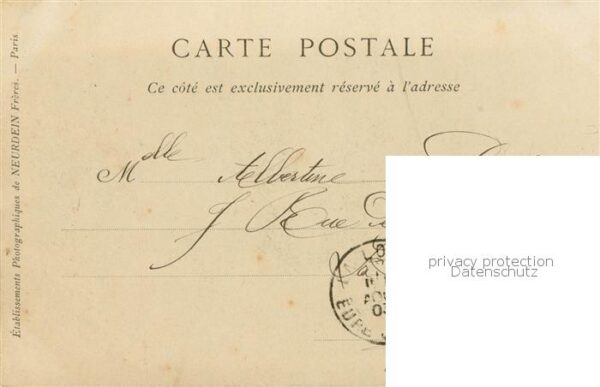 CARTE POSTALE
Ce côté est exclusivement réservé à l'adresse
Établissements Photographiques de NEURDEIN Frères. — Paris
Mlle Albertine
5 Rue
EURE
privacy protection
Datenschutz